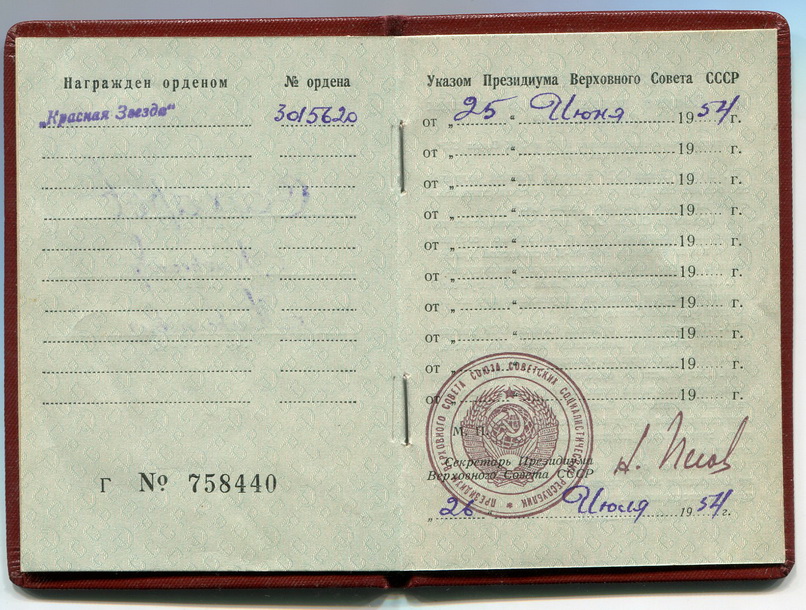 Награжден орденом № ордена
„Красная Звезда“ 3015620
Г № 758440
Указом Президиума Верховного Совета СССР
от „ 25 “ Июня 1954 г.
от „ “ 19 г.
от „ “ 19 г.
от „ “ 19 г.
от „ “ 19 г.
от „ “ 19 г.
от „ “ 19 г.
от „ “ 19 г.
от „ “ 19 г.
от „ “ 19 г.
ПРЕЗИДИУМ ВЕРХОВНОГО СОВЕТА СОЮЗА СОВЕТСКИХ СОЦИАЛИСТИЧЕСКИХ РЕСПУБЛИК
М. П.
Секретарь Президиума
Верховного Совета СССР
„ 26 “ Июля 1954 г.